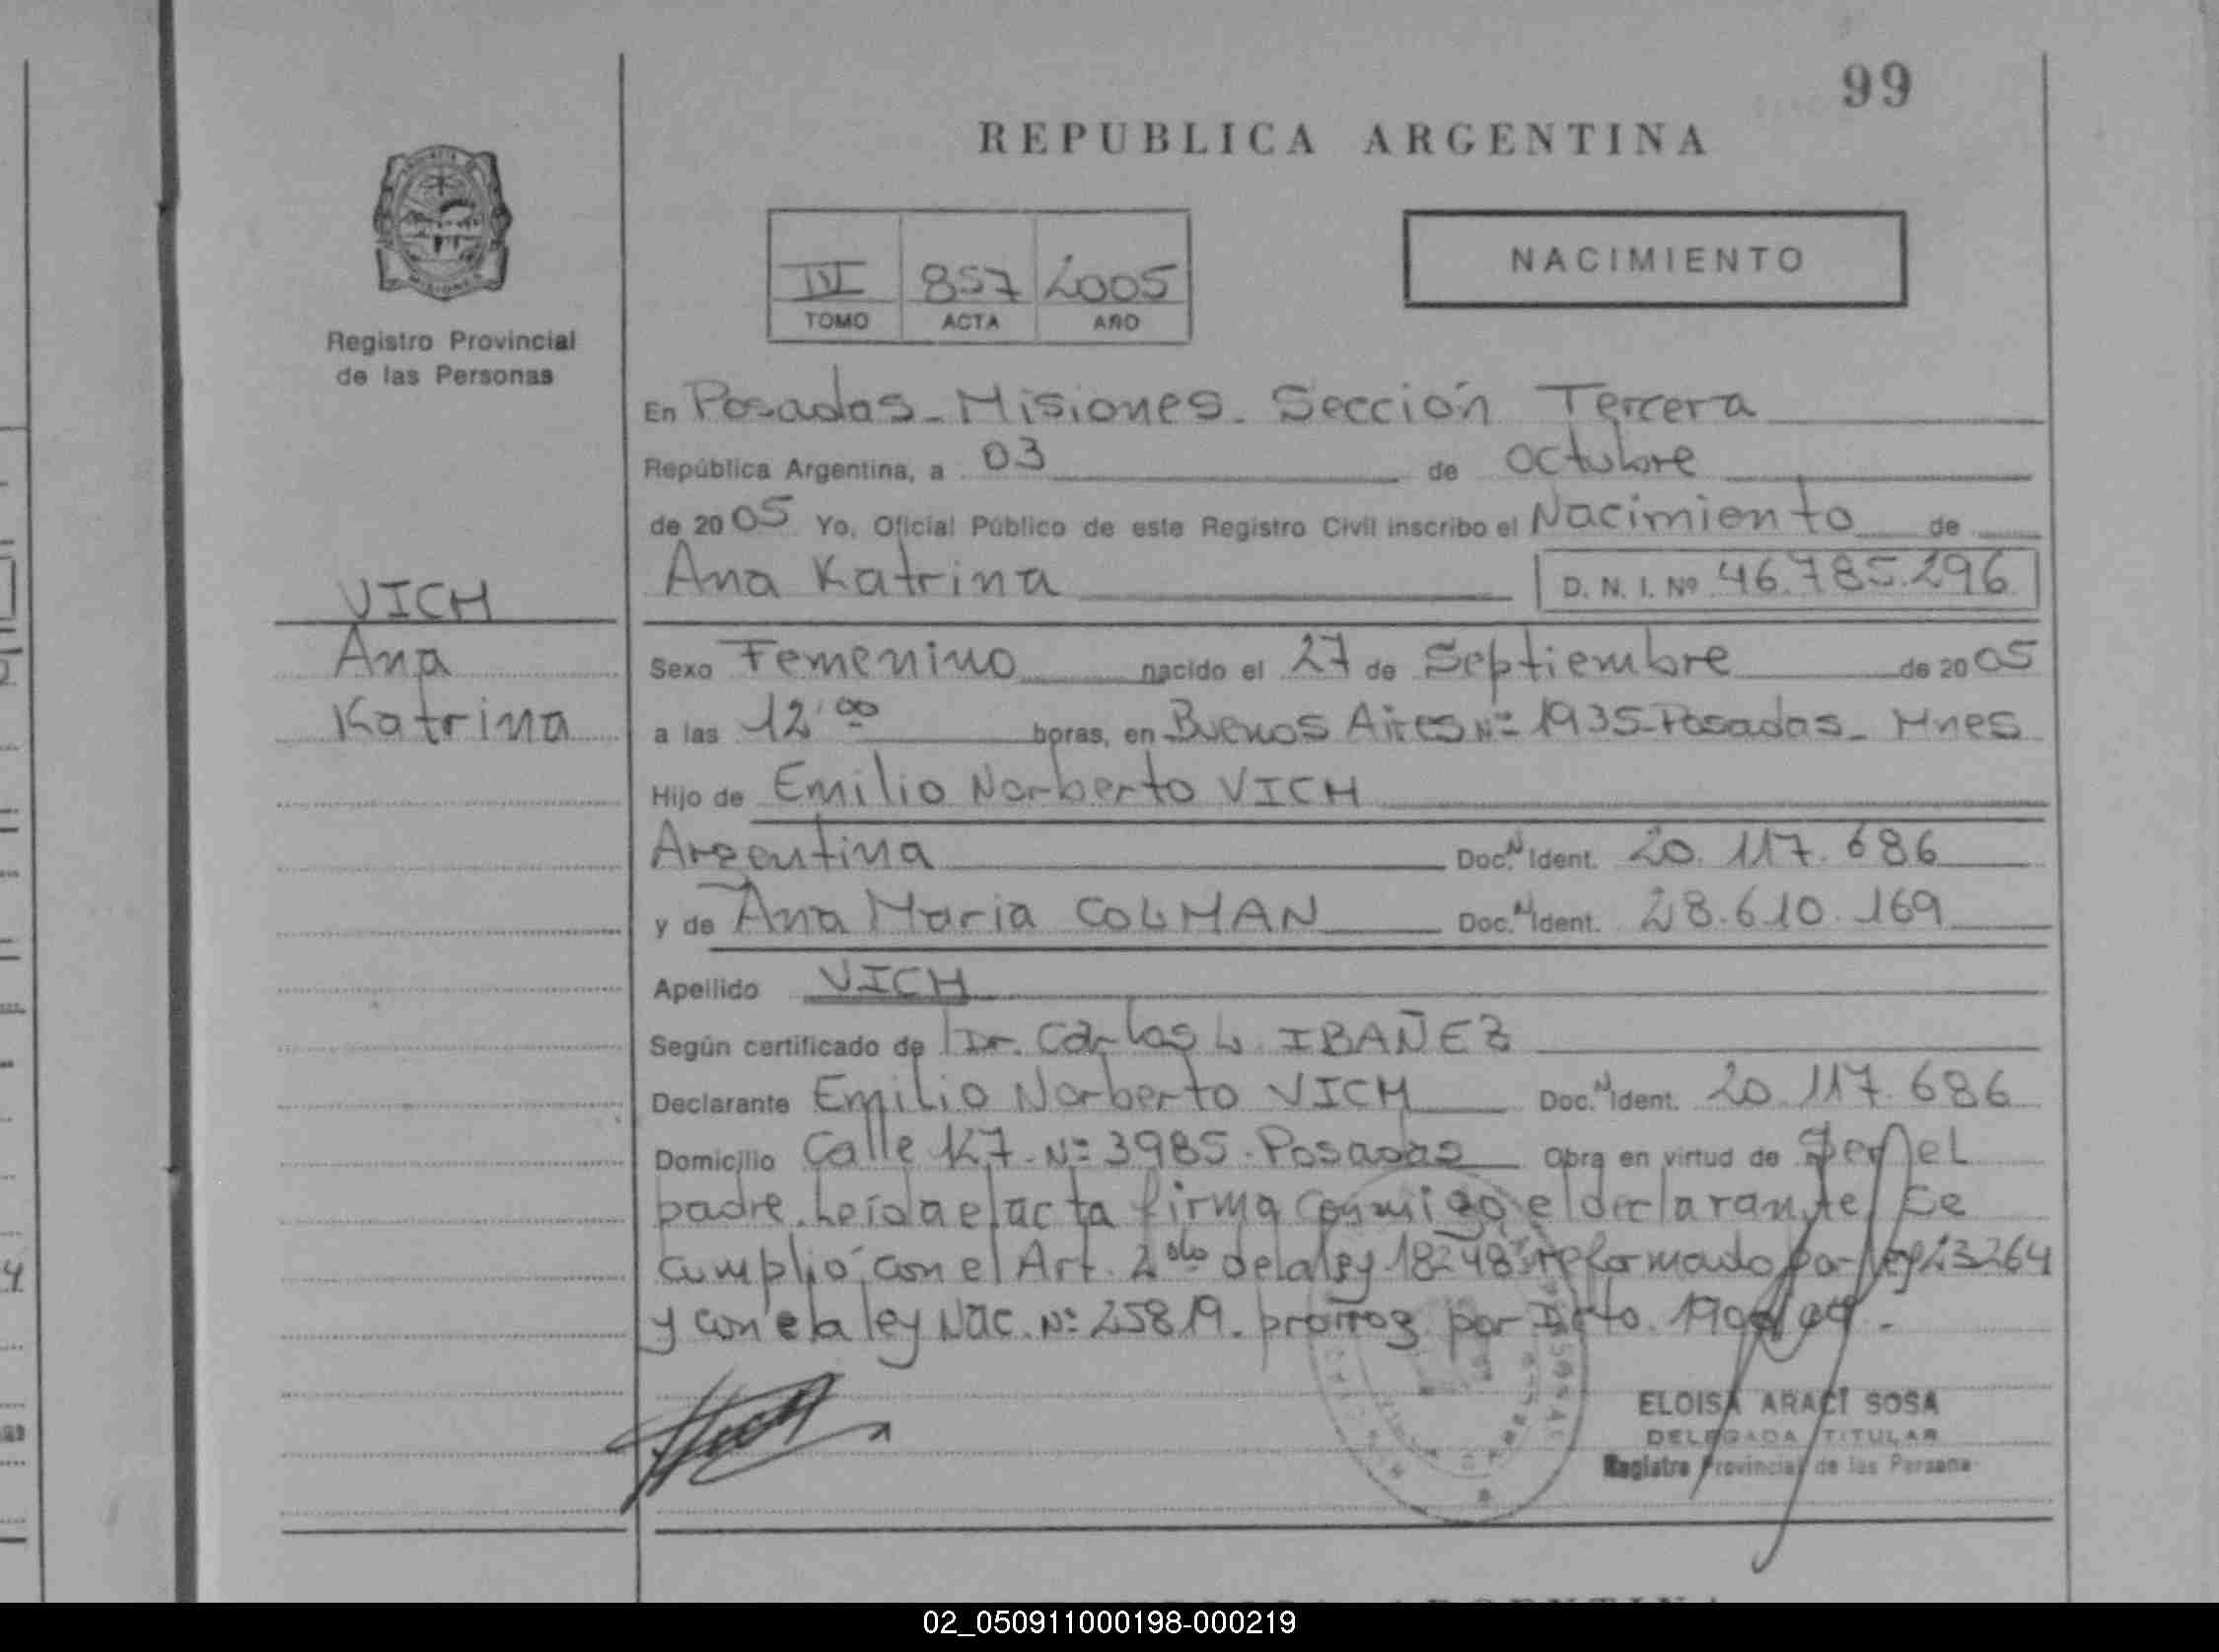 99
REPUBLICA ARGENTINA
IV 857 2005
TOMO ACTA AÑO
NACIMIENTO
Registro Provincial
de las Personas
En Posadas - Misiones - Sección Tercera
República Argentina, a 03 de octubre
de 2005 Yo, Oficial Público de este Registro Civil inscribo el Nacimiento de
Ana Katrina D. N. I. Nº 46.785.296
VICH
Ana
Katrina
Sexo Femenino nacido el 27 de Septiembre de 2005
a las 12'00 horas, en Buenos Aires Nº 1935-Posadas - Mnes
Hijo de Emilio Norberto VICH
Argentina Doc. N Ident. 20.117.686
y de Ana Maria COLMAN Doc. N Ident. 28.610.169
Apellido VICH
Según certificado de Dr. Carlos L. IBAÑEZ
Declarante Emilio Norberto VICH Doc. N Ident. 20.117.686
Domicilio Calle 147 - Nº 3985 - Posadas Obra en virtud de Ser el
padre. Leída el acta firma conmigo el declarante. Se
cumplió con el Art. 2do de la ley 18248 reformado por ley 23264
y con la ley Nac. Nº 25819. por Dcto.
ELOISA ARACI SOSA
DELEGADA TITULAR
Registro Provincial de las Persona
02_050911000198-000219